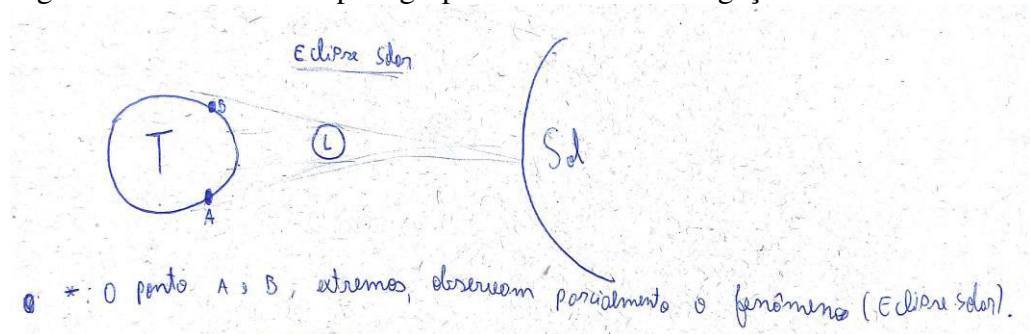 Eclipse Solar
B
T
L
Sol
A
*: O ponto A, B, extremos, observam parcialmento o fenômeno (Eclipse solar).